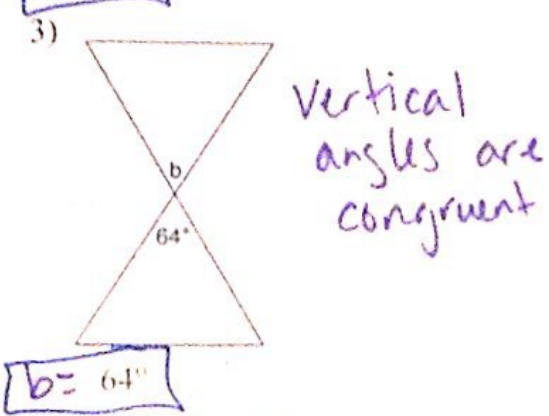 3)
Vertical
angles are
congruent
b
64°
b= 64°